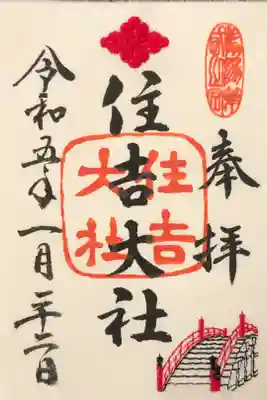 奉拝
住吉大社
住吉大社
令和五年一月二十二日